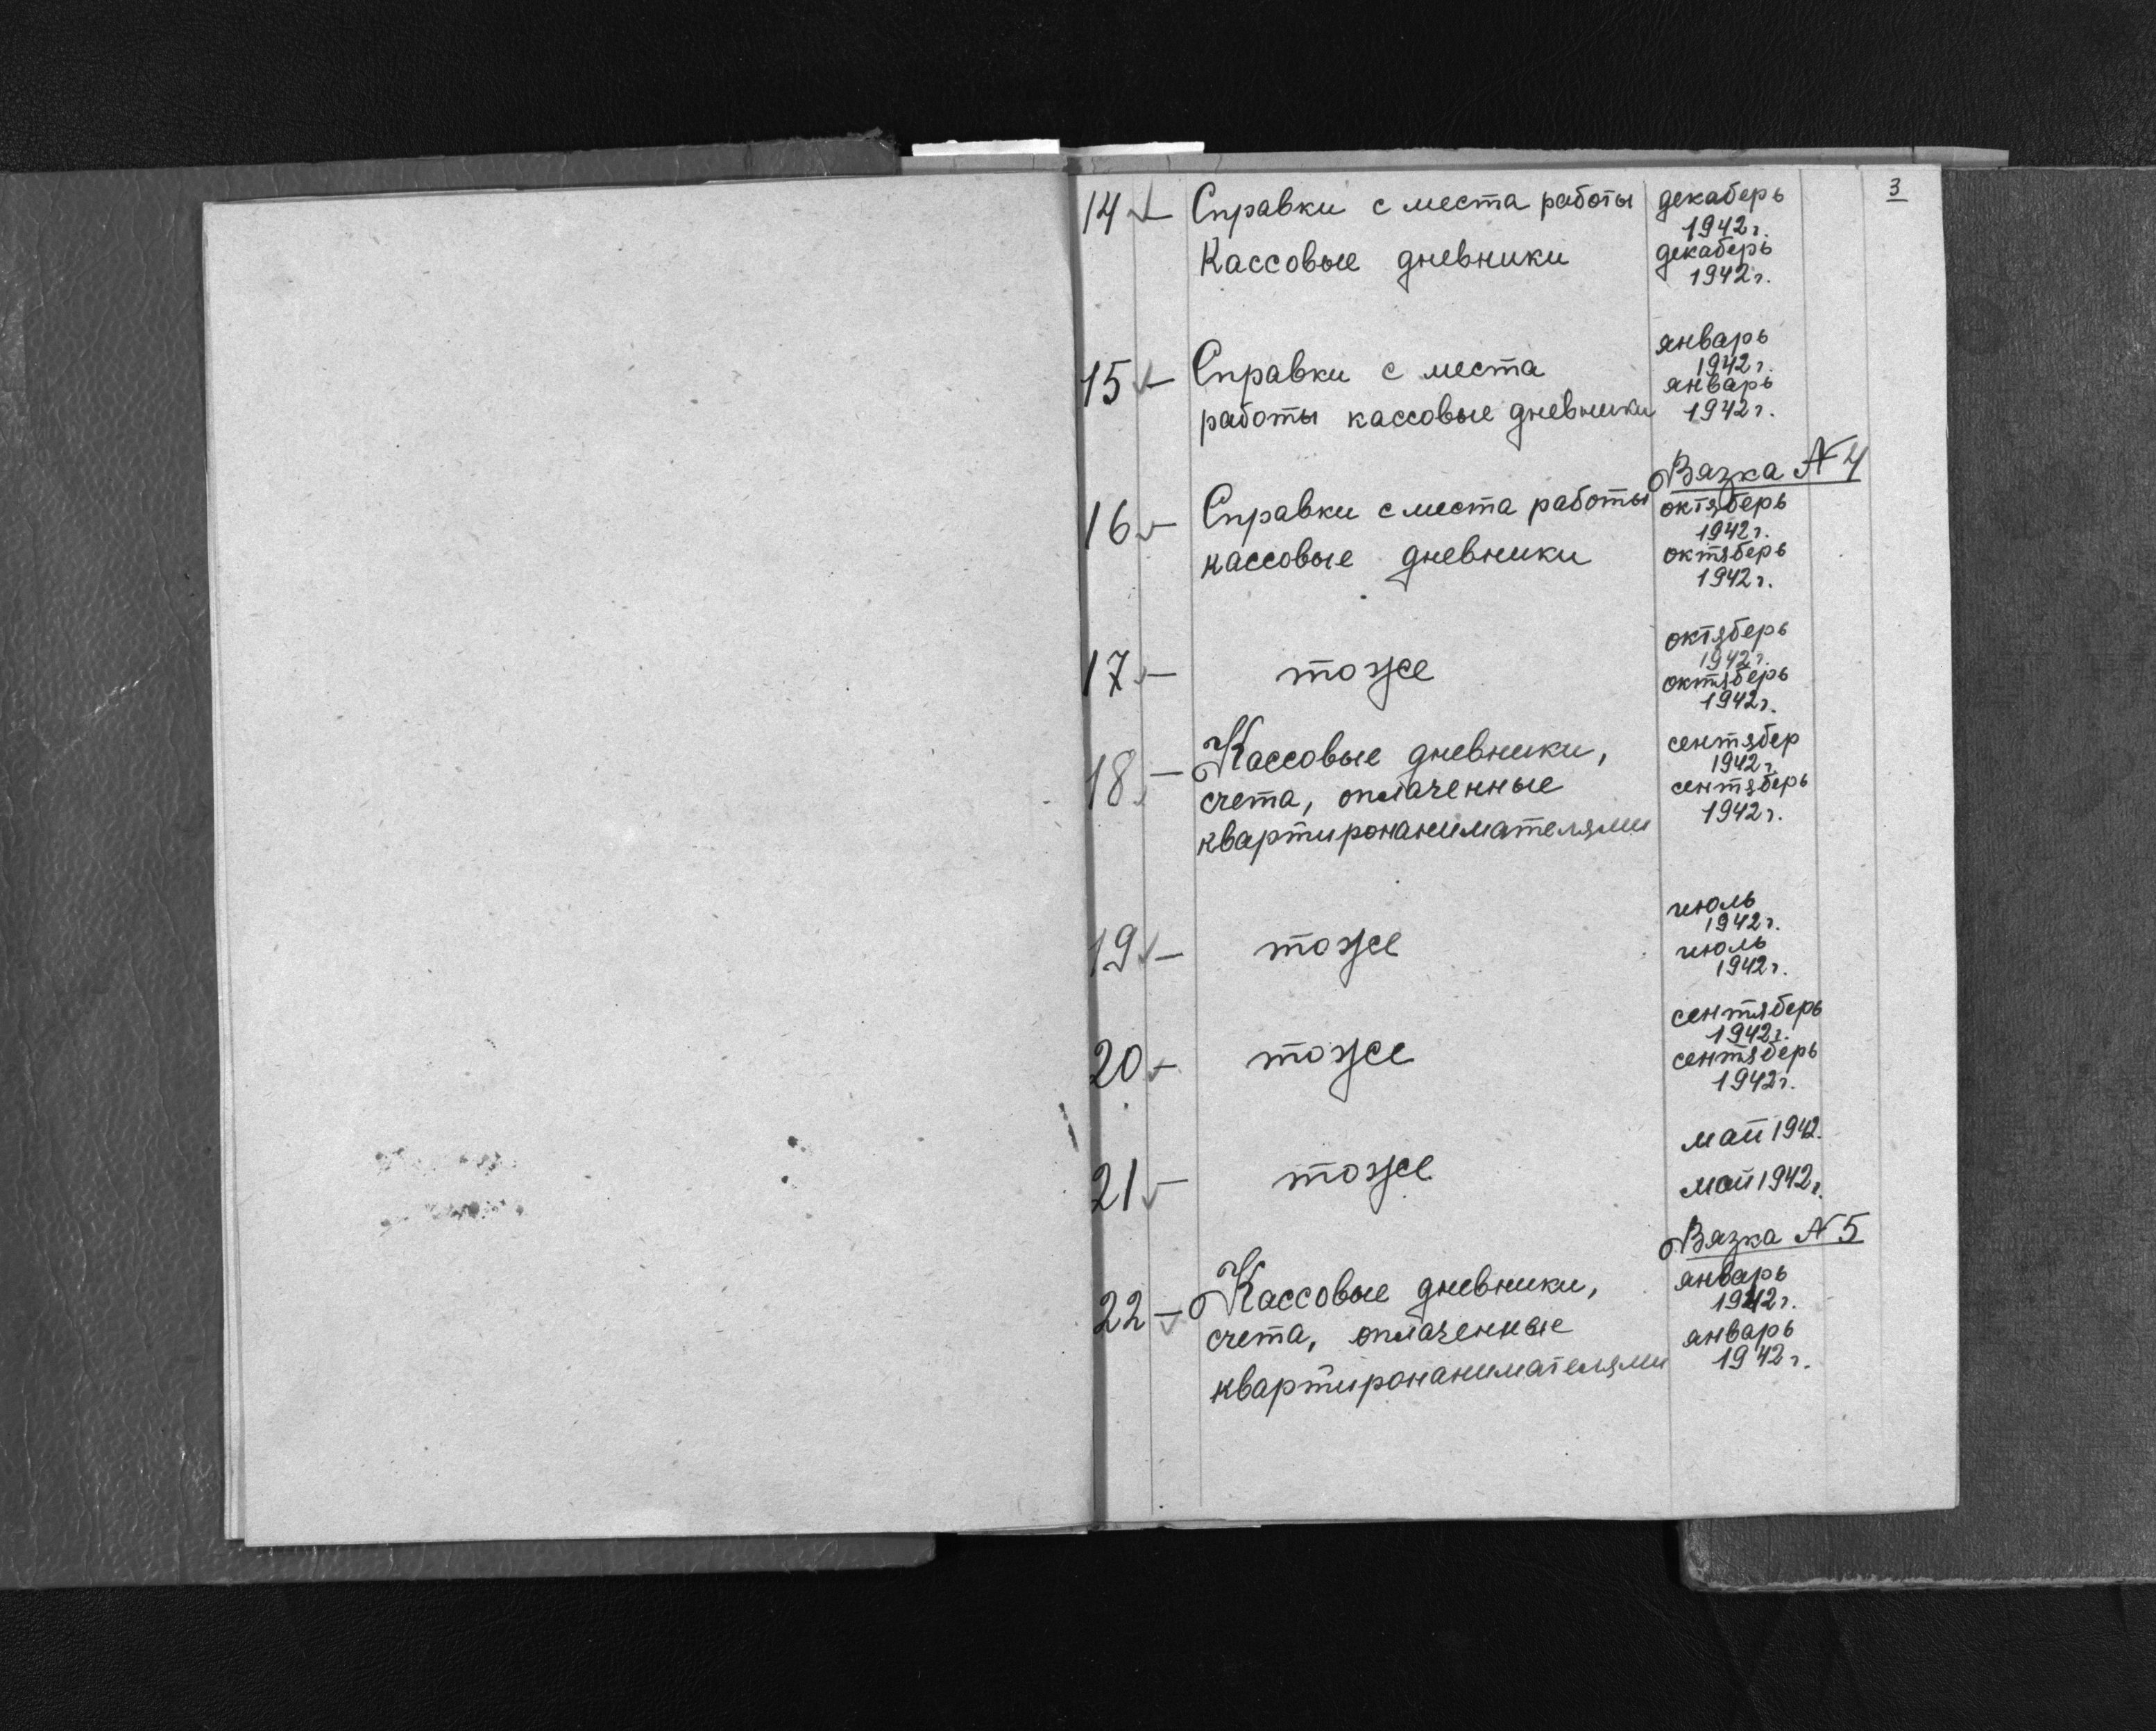 3
14 Справки с места работы декаберь
1942 г.
Кассовые дневники декаберь
1942 г.
январь
1942 г.
15 Справки с места январь
работы кассовые дневники 1942 г.
Вязка N 4
16 Справки с места работы октяберь
1942 г.
кассовые дневники октяберь
1942 г.
октяберь
1942 г.
17 тоже октяберь
1942 г.
18 Кассовые дневники, сентябер
1942 г.
счета, оплаченные сентяберь
1942 г.
квартиронанимателями
июль
1942 г.
19 тоже июль
1942 г.
сентяберь
1942 г.
20 тоже сентяберь
1942 г.
май 1942.
21 тоже май 1942 г.
Вязка N 5
22 Кассовые дневники, январь
1942 г.
счета, оплаченные январь
1942 г.
квартиронанимателями